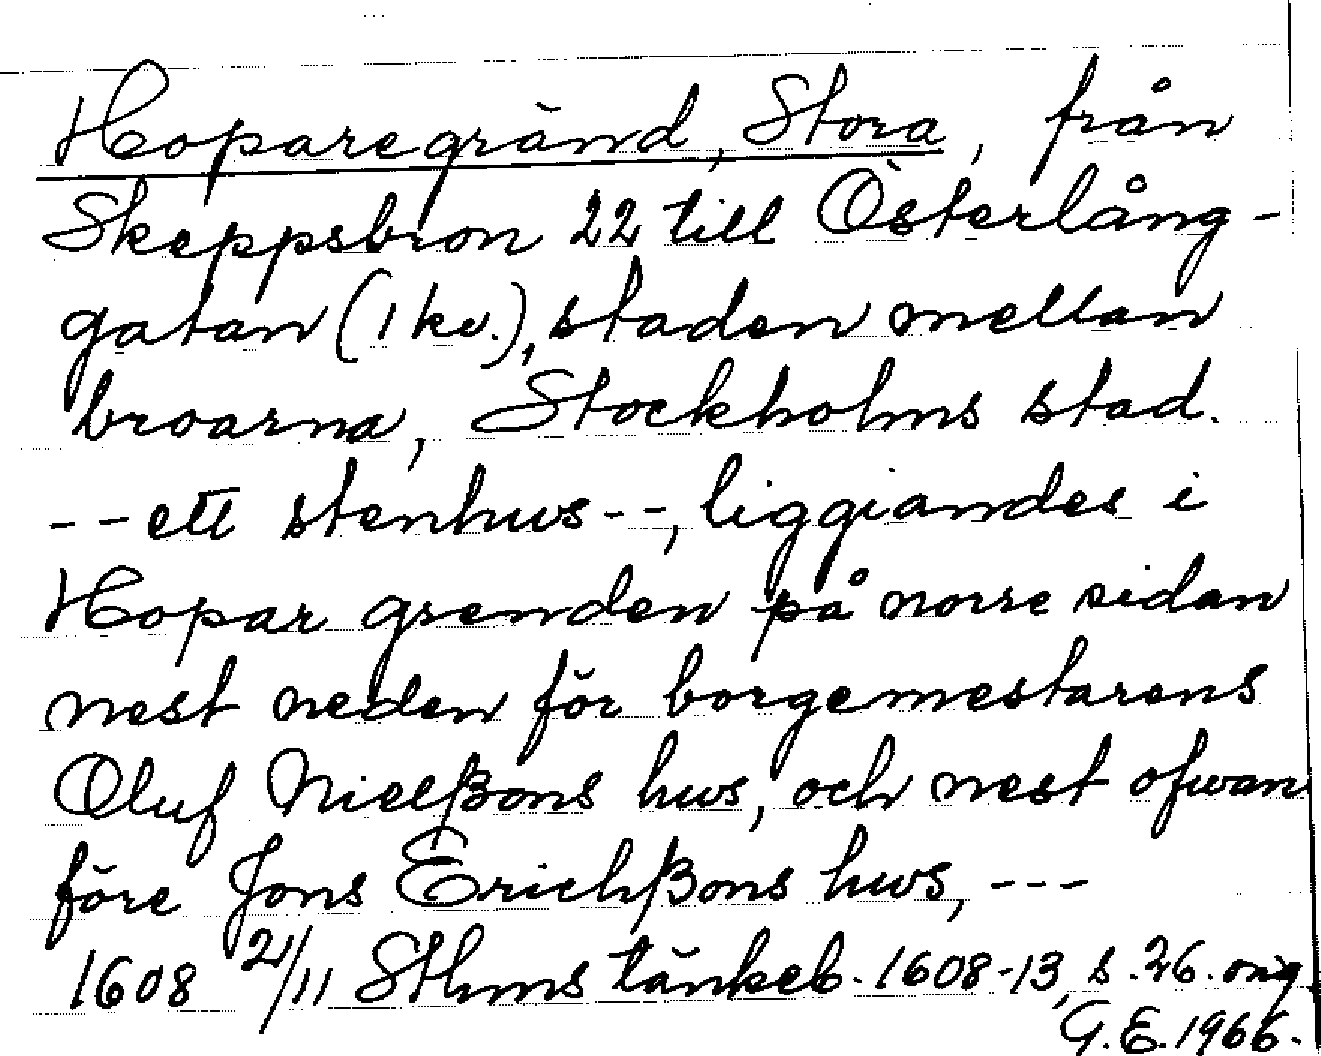 Hoparegränd, Stora, från
Skeppsbron 22 till Österlång-
gatan (1 kv.), staden mellan
broarna, Stockholms stad.
-- ett stenhws --, liggiandes i
Hopar grenden på norre sidan
nest neden för borgemestarens
Oluf Nielßons hws, och nest ofwan
före Jöns Erichßons hws, ---
1608 21/11 Sthms tänkeb. 1608-13, s. 26. orig.
G.E. 1966.